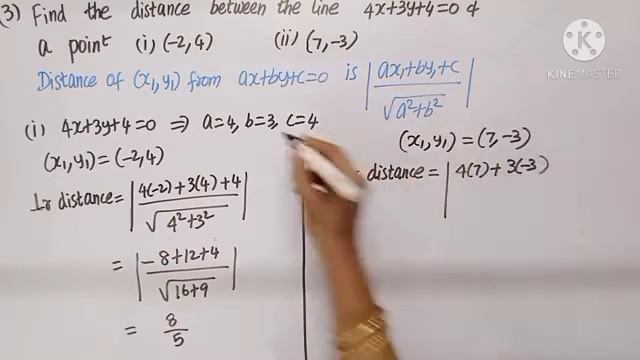 (3) Find the distance between the line 4x+3y+4=0 &
a point (i) (-2,4) (ii) (7,-3)
Distance of (x₁,y₁) from ax+by+c=0 is |ax₁+by₁+c / √a²+b²|
(i) 4x+3y+4=0 ⇒ a=4, b=3, c=4
(x₁,y₁)=(-2,4)
⊥r distance = |4(-2)+3(4)+4 / √4²+3²|
= |-8+12+4 / √16+9|
= 8/5
(x₁,y₁)=(7,-3)
distance = |4(7)+3(-3)
KINEMASTER